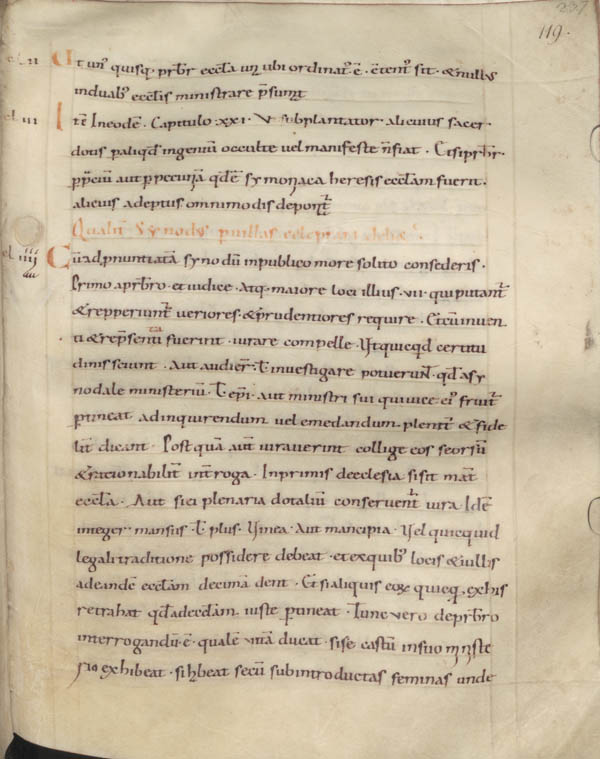 237
119.
cł. II Ut un' quisq; prƀr eccła un ubi ordinat' ē. cētent' sit. & nullus
induab' ecclis ministrare p̄sumat
cł. III Itē Ineodē. Capitulo. XXI. Ut subplantator. alicuius sacer
dotis p aliqđ ingeniū occulte uel manifeste n̄ fiat. Et si prƀr.
p p̄ciū aut p pecuniā qđ ē symoniaca heresis ecclam fuerit.
alicuius adeptus omnimodis deponat̄
Qualit̄ Synodus p uillas celebrari debeat.
cł. IIII Cū ad p̄nuntiatā synodū inpublico more solito consederis.
Primo a prƀro. et iudice. Atq; maiore loci illius. VII. qui putant̄
& repperiunt̄ ueriores. & prudentiores require. Et cū inuen
ti & rep̄sentati fuerint. iurare compelle. Ut quicqđ certitu
dinis sciunt. Aut audier̄. ł inuestigare potuerunt. qđ a sy
nodale ministeriū. ł epi. aut ministri sui qui uice ei' fruit̄
p̄tineat ad inquirendum uel emedandum. plenit̄ & fide
lit̄ dicant. Postquā aut̄ iurauerint collige eos seorsū
& rationabilit̄ int̄roga. Inprimis de ecclesia si sit mat̄
eccła. Aut si ei plenaria dotaliū conseruent̄ iura Idē
integer mansus. ł plus. Uinea. Aut mancipia. Uel quicquid
legali traditione possidere debeat. et ex quib' locis & uillis
ad eandē ecclam decimā dent. Et si aliquis ex his
retrahat qđ ad ecclam. iuste p̄tineat. Tunc uero de prƀro
interrogandū ē. qualē uitā ducat. si se castū in suo ministe
rio exhibeat. si habeat secū subintroductas feminas unde